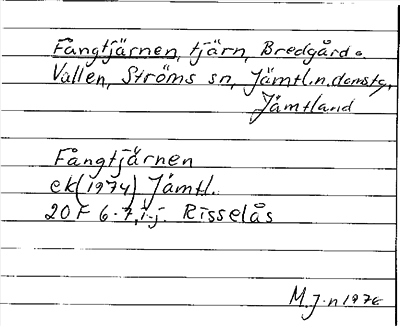 Fångtjärnen, tjärn, Bredgård o.
Vallen, Ströms sn, Jämtl.n.domstg,
Jämtland
Fångtjärnen
ek(1974) Jämtl.
20F 6-7,i-j. Risselås
M.J-n 1976